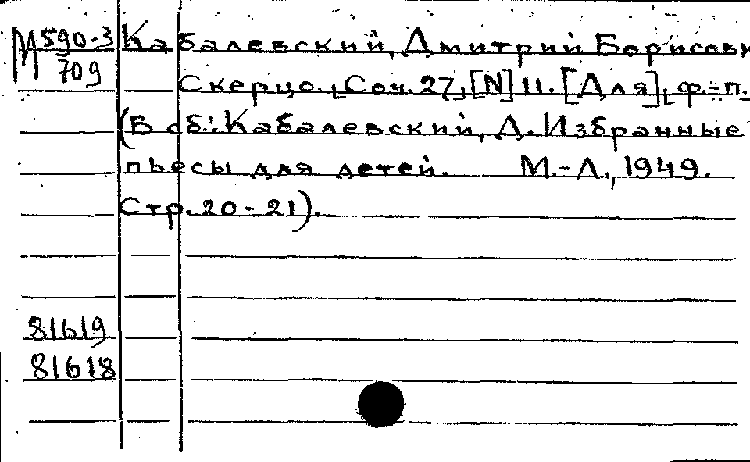 М 590-3 Кабалевский, Дмитрий Борисови
709
Скерцо. Соч. 27, [N] 11. [Для] ф.-п.
(В сб.: Кабалевский, Д. Избранные
пьесы для детей. М.-Л., 1949.
Стр. 20-21).
81619
81618